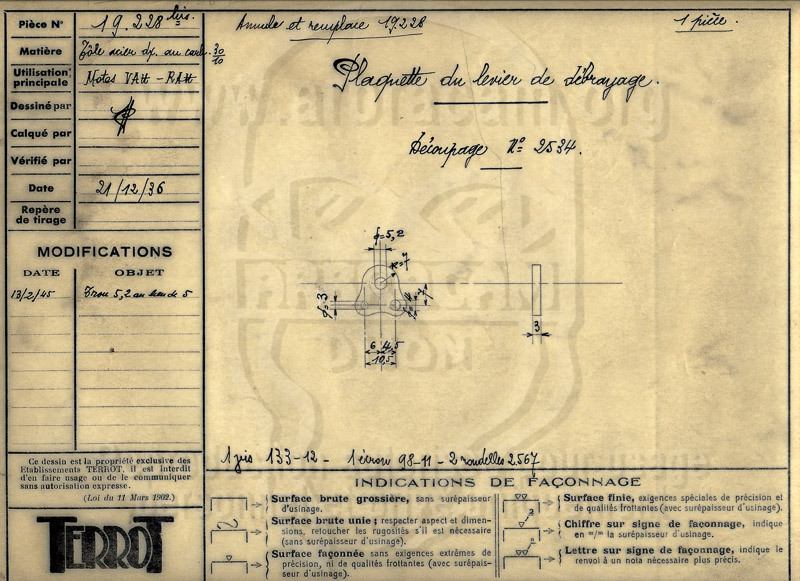 Pièce N° 19.228 bis
Annule et remplace 19228
1 pièce.
Matière Tôle acier dx. au carb. 30/10
Utilisation principale Motos VAH - RAH
Dessiné par
Calqué par
Vérifié par
Date 21/12/36
Repère de tirage
Plaquette du levier de débrayage.
Découpage N° 2534.
MODIFICATIONS
DATE OBJET
13/2/45 Trou 5,2 au lieu de 5
ø=5,2
R=7
ø=3
3
6 4,5
10,5
1 gris 133-12 - 1 écrou 98-11 - 2 rondelles 2567
Ce dessin est la propriété exclusive des
Etablissements TERROT, il est interdit
d'en faire usage ou de le communiquer
sans autorisation expresse.
(Loi du 11 Mars 1902.)
TERROT
INDICATIONS DE FAÇONNAGE
Surface brute grossière, sans surépaisseur
d'usinage.
Surface brute unie ; respecter aspect et dimen-
sions, retoucher les rugosités s'il est nécessaire
(sans surépaisseur d'usinage).
Surface façonnée sans exigences extrêmes de
précision, ni de qualités frottantes (avec surépais-
seur d'usinage).
Surface finie, exigences spéciales de précision et
de qualités frottantes (avec surépaisseur d'usinage).
Chiffre sur signe de façonnage, indique
en m/m la surépaisseur d'usinage.
Lettre sur signe de façonnage, indique le
renvoi à un nota nécessaire plus précis.